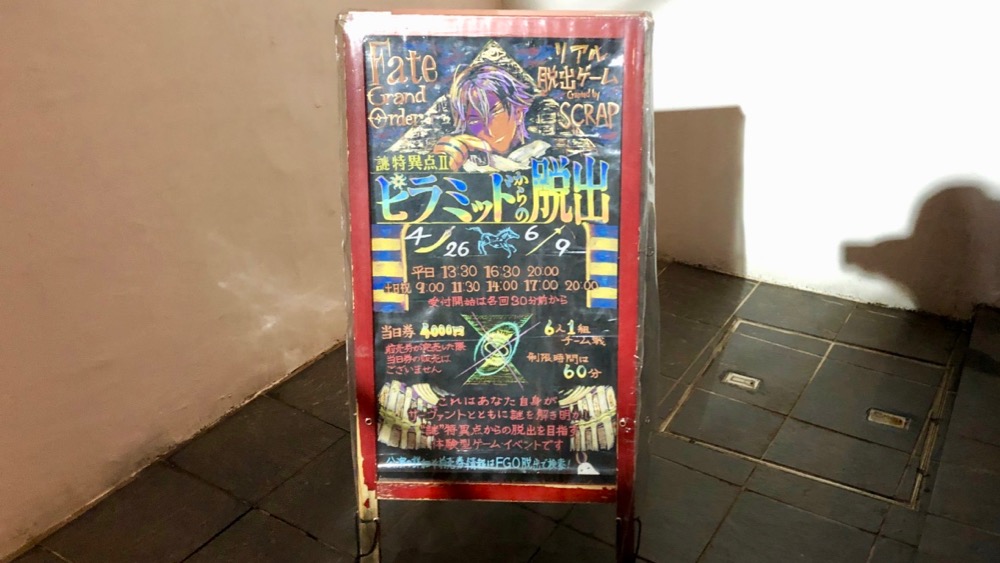 Fate
Grand
Order
リアル
脱出ゲーム
Created by
SCRAP
謎特異点Ⅱ
ピラミッドからの脱出
4/26
6/9
平日 13:30 16:30 20:00
土日祝 9:00 11:30 14:00 17:00 20:00
受付開始は各回30分前から
当日券 4000円
前売券が完売した際
当日券の販売は
ございません
6人1組
チーム戦
制限時間は
60分
これはあなた自身が
サーヴァントとともに謎を解き明かし
"謎"特異点からの脱出を目指す
体験型ゲームイベントです
情報はFGO脱出で検索!